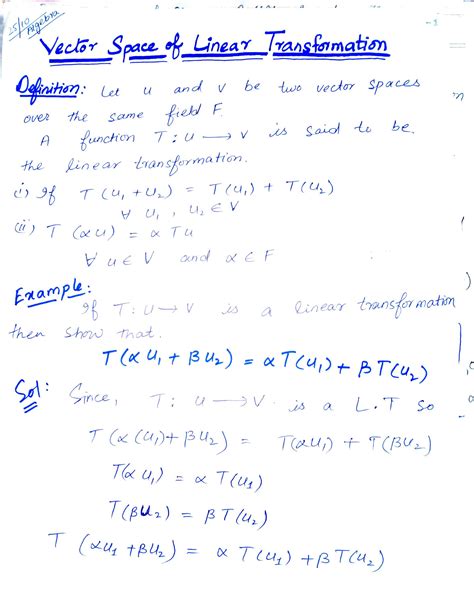 15/10
Algebra
-1
Vector Space of Linear Transformation
Definition: Let u and v be two vector spaces
over the same field F.
A function T: u → v is said to be.
the linear transformation.
i) If T(u₁ + u₂) = T(u₁) + T(u₂)
∀ u₁, u₂ ∈ V
(ii) T (αu) = α Tu
∀ u ∈ V and α ∈ F
Example:
If T: U → V is a linear transformation
then show that.
T(α u₁ + β u₂) = α T(u₁) + β T(u₂)
Sol: Since, T: u → v is a L.T so
T (α (u₁) + β u₂) = T(αu₁) + T(βu₂)
T(α u₁) = α T(u₁)
T(βu₂) = β T(u₂)
T (αu₁ + βu₂) = α T(u₁) + βT(u₂)